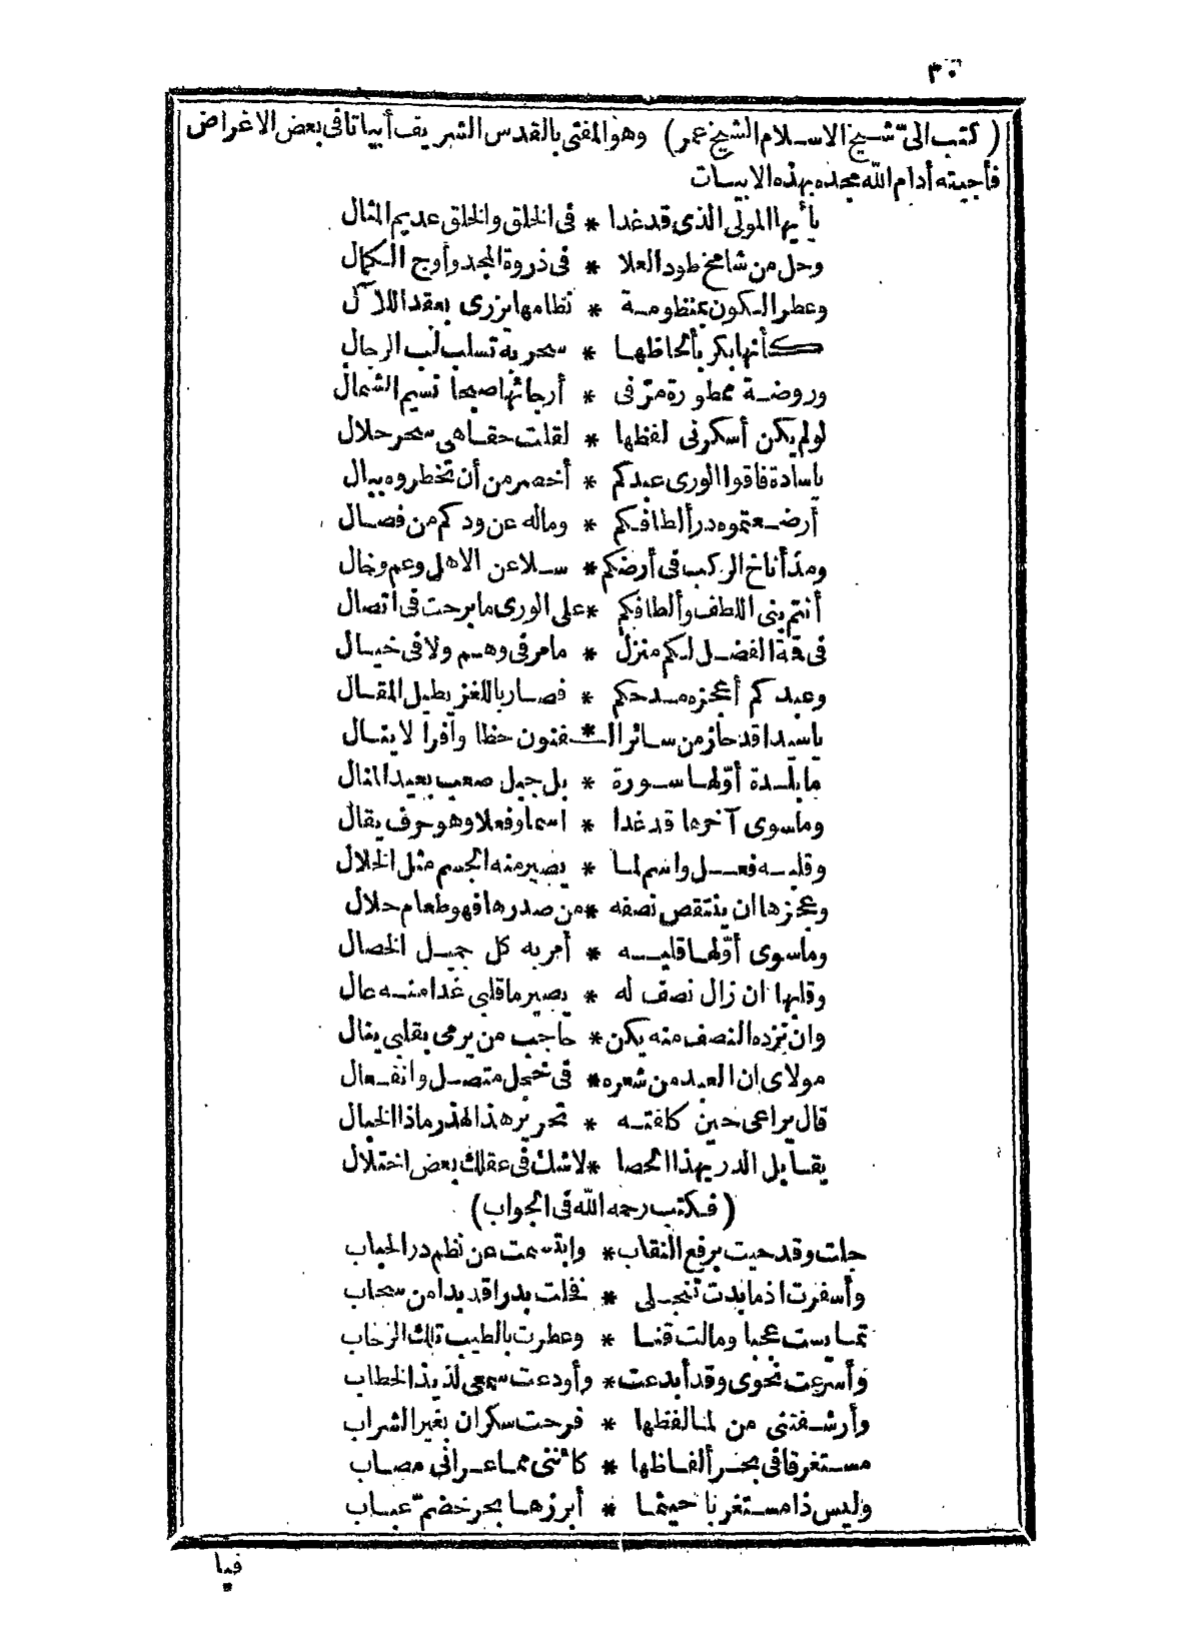 ٣٠
(كتب الىّ شيخ الاسلام الشيخ عمر) وهو المفتى بالقدس الشريف أبياتا فى بعض الاغراض
فأجبته أدام الله مجده بهذه الابيات
يا أيها المولى الذى قد غدا * فى الخلق والخلق عديم المثال
وحل من شامخ طود العلا * فى ذروة المجد وأوج الكمال
وعطر الكون بمنظومة * نظامها يزرى بعقد اللآل
كأنها بكر بألحاظها * سحرية تسلب لب الرجال
وروضة ممطورة مرّ فى * أرجائها صبحا نسيم الشمال
لولم يكن أسكرنى لفظها * لقلت حقا هى سحر حلال
ياسادة فاقوا الورى عبدكم * أخصر من أن تخطروه ببال
أرضعتموه در ألطافكم * وماله عن ودكم من فصال
ومذ أناخ الركب فى أرضكم * سلا عن الاهل وعم وخال
أنتم بنى اللطف وألطافكم * على الورى ما برحت فى اتصال
فى قمة الفضل لكم منزل * مامر فى وهم ولا فى خيال
وعبدكم أعجزه مدحكم * فصار باللغز يطيل المقال
ياسيدا قد حاز من سائر الـ * ـفنون حظا وافرا لا ينال
ما بلدة أوّلها سورة * بل جبل صعب بعيد المنال
وماسوى آخرها قد غدا * اسما وفعلا وهو حرف يقال
وقلبه فعل واسم لما * يصير منه الجسم مثل الخلال
وعجزها ان ينتقص نصفه * من صدرها فهو طعام حلال
وماسوى أوّلها قلبه * أمر به كل جميل الخصال
وقلبها ان زال نصف له * يصير ما قلبى غدا منه عال
وان تزده النصف منه يكن * حاجب من يرمى بقلبى ينال
مولاى ان العبد من شعره * فى خجل متصل وانفعال
قال يراعى حين كلفته * تحرير هذا الهذر ماذا الخبال
يقابل الدر بهذا الحصا * لاشك فى عقلك بعض اختلال
(فكتب رحمه الله فى الجواب)
جلت وقد حيت برفع النقاب * وابتسمت عن نظم در الحباب
وأسفرت اذ ما بدت تنجلى * نخلت بدرا قد بدا من سحاب
تمايست عجبا ومالت قنا * وعطرت بالطيب تلك الرحاب
وأسرعت نحوى وقد أبدعت * وأودعت سمعى لذيذ الخطاب
وأرشفتنى من لما لفظها * فرحت سكران بغير الشراب
مستغرقا فى بحر ألفاظها * كأننى مما عرانى مصاب
وليس ذا مستغربا حيثما * أبرزها بحر خضم عباب
فيا